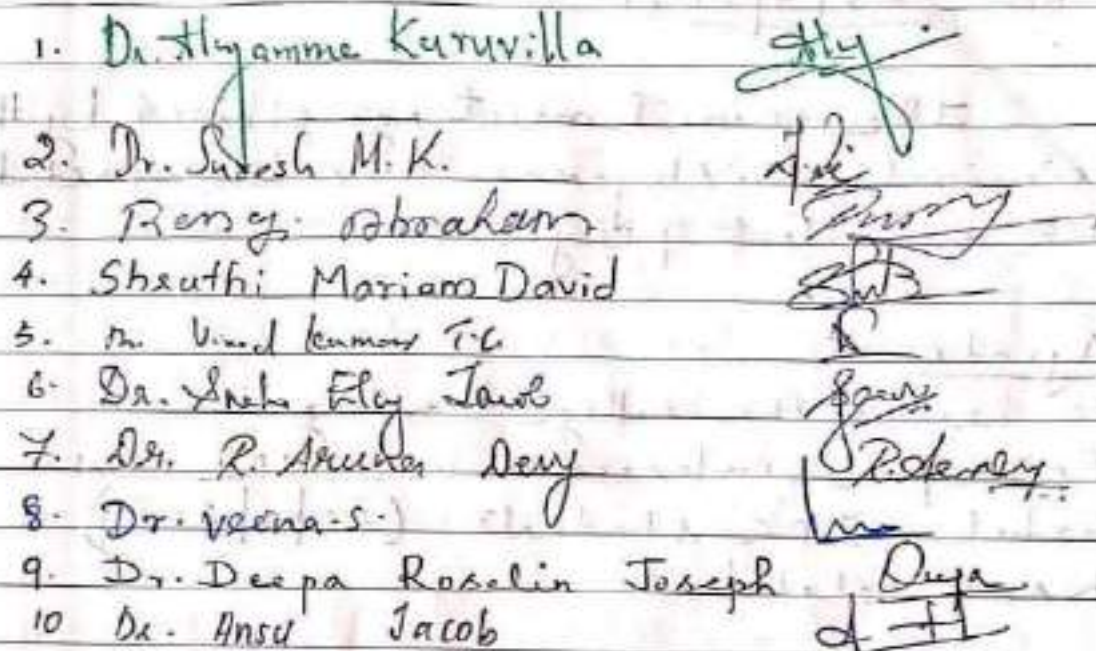 1. Dr. Alyamma Kuruvilla Aly
2. Dr. Suresh M.K.
3. Reny Abraham
4. Shruthi Mariam David
5. Dr. Vinod Kumar T.G.
6. Dr. Sneha Elcy Jacob
7. Dr. R. Aruna Devy
8. Dr. Veena.S.
9. Dr. Deepa Roselin Joseph Deepa
10 Dr. Ansu Jacob